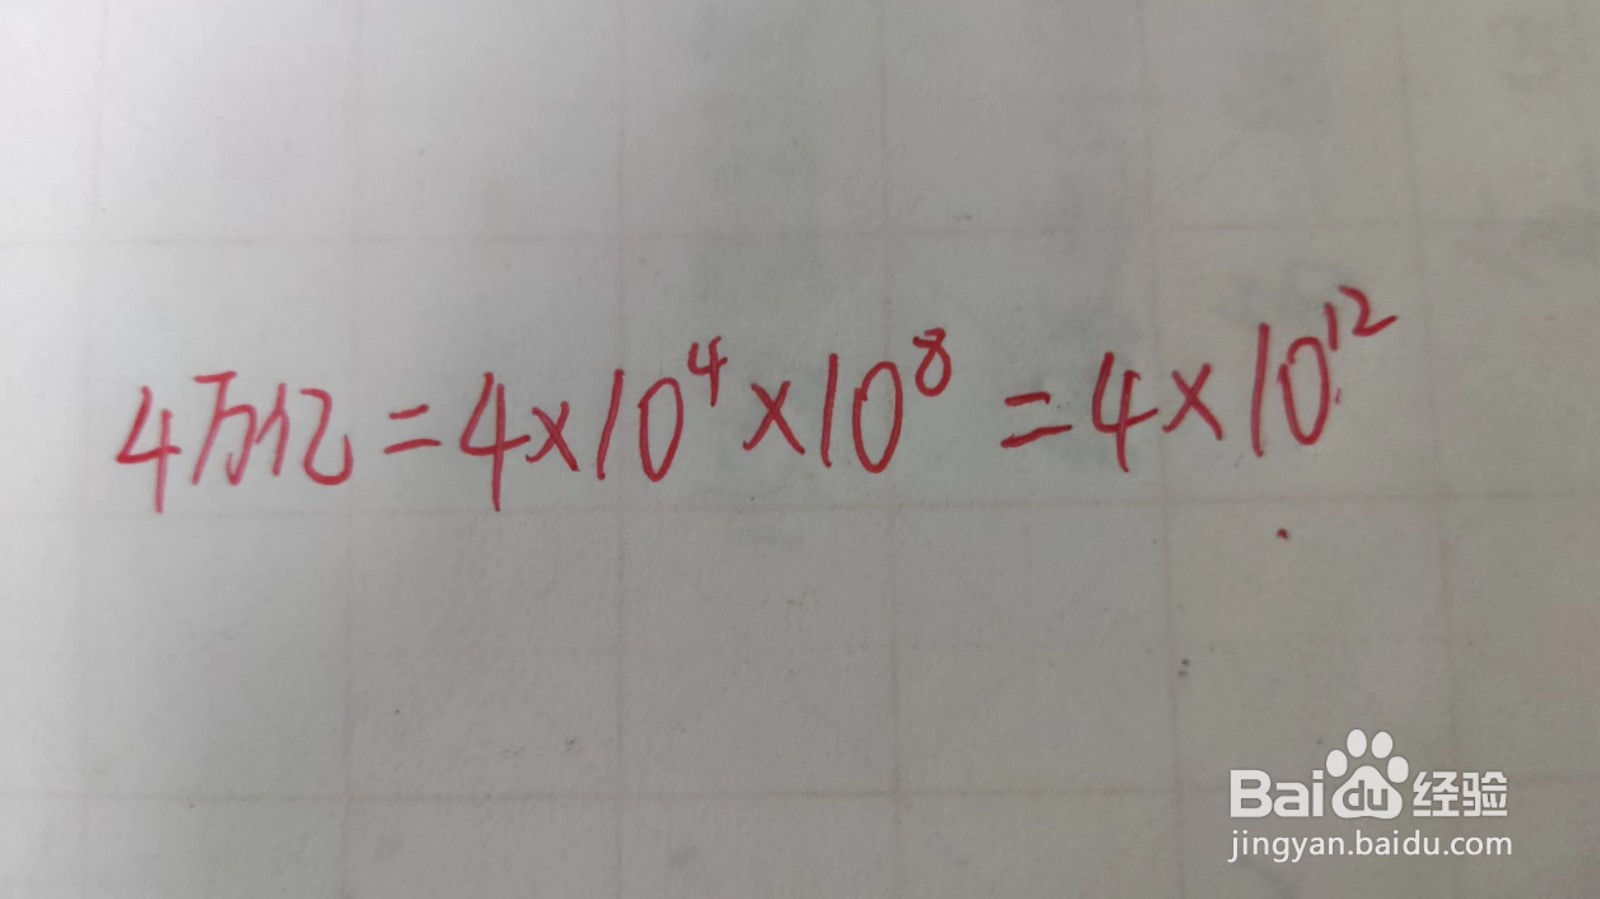 4万亿=4×10⁴×10⁸=4×10¹²
Bai du 经验
jingyan.baidu.com